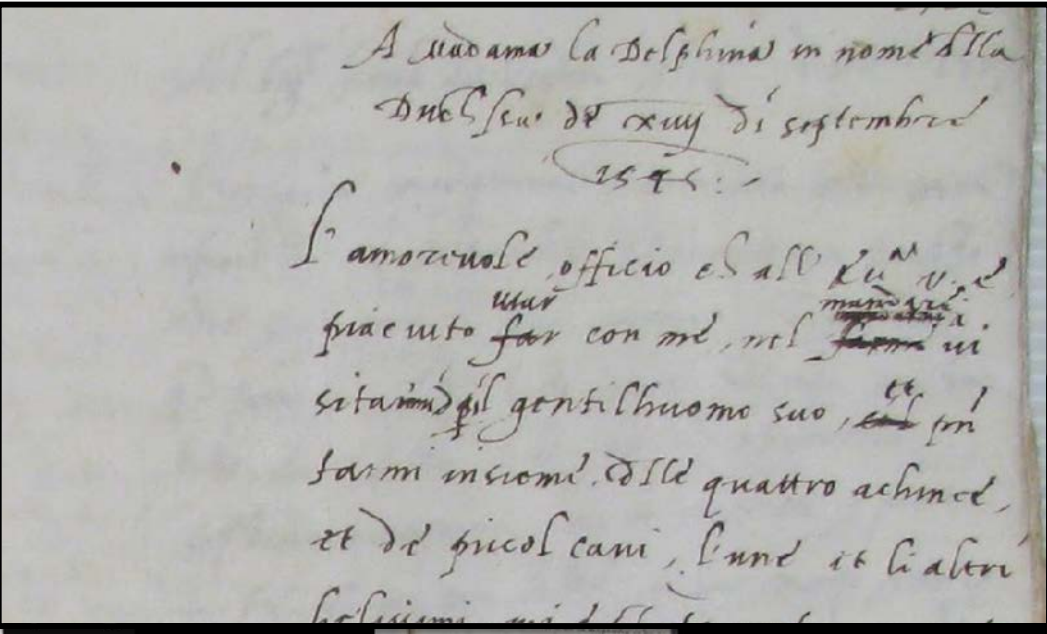 A Madama la Delphina in nome della
Duchessa. de xiiij di septembre
1545.
L'amorevole officio ch all' Ex.a v. è
piaciuto usar far con me, nel mandare a vi
sitarmi per il gentilhuomo suo, et pñ
tarmi insieme colle quattro achinee,
et de piccol cani, l'une et li altri